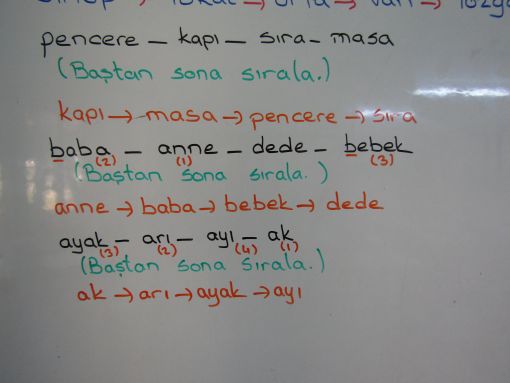 pencere – kapı – sıra – masa
(Baştan sona sırala.)
kapı → masa → pencere → sıra
baba – anne – dede – bebek
(2) (1) (3)
(Baştan sona sırala.)
anne → baba → bebek → dede
ayak – arı – ayı – ak
(3) (2) (4) (1)
(Baştan sona sırala.)
ak → arı → ayak → ayı